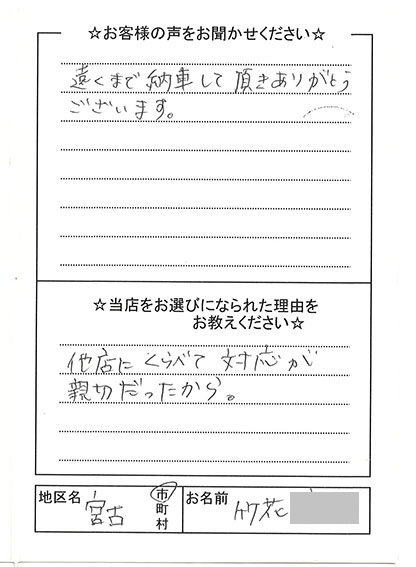 ☆お客様の声をお聞かせください☆
遠くまで納車して頂きありがとう
ございます。
☆当店をお選びになられた理由を
お教えください☆
他店にくらべて対応が
親切だったから。
地区名 宮古 市町村 お名前 竹花